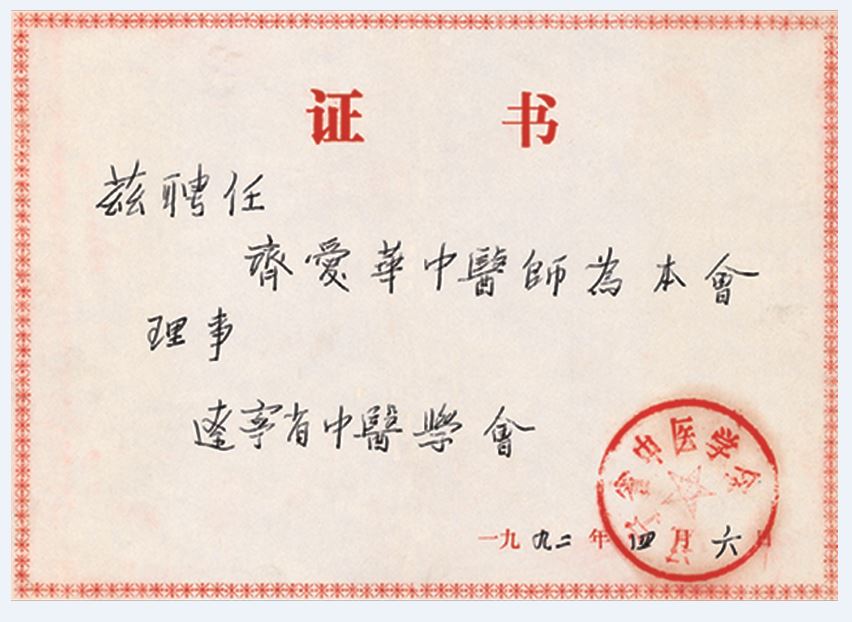 证书
茲聘任
齊愛華中醫師為本會
理事
遼寧省中醫學會
一九九二年四月六日
中医学会